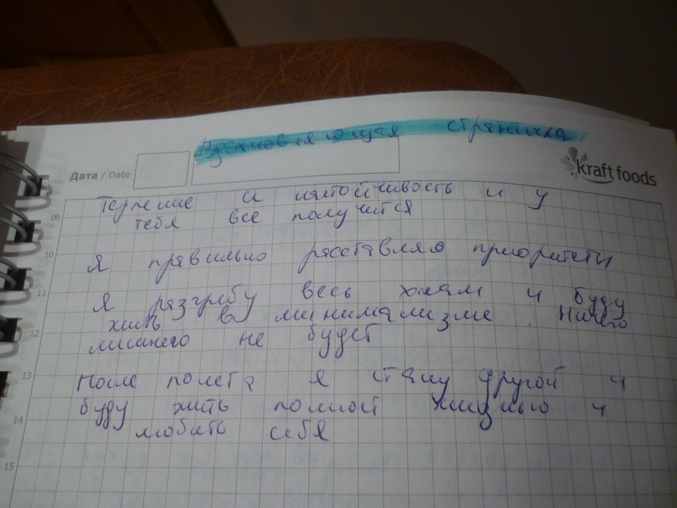 Вдохновляющая страничка
kraft foods
Дата / Date
Терпение и настойчивость и у
09
тебя все получится
10
Я правильно расставляю приоритеты
11
Я разгребу весь хлам и буду
жить в минимализме. Ничего
12
лишнего не будет
13
После полета я стану другой и
буду жить полной жизнью и
14
любить себя
15